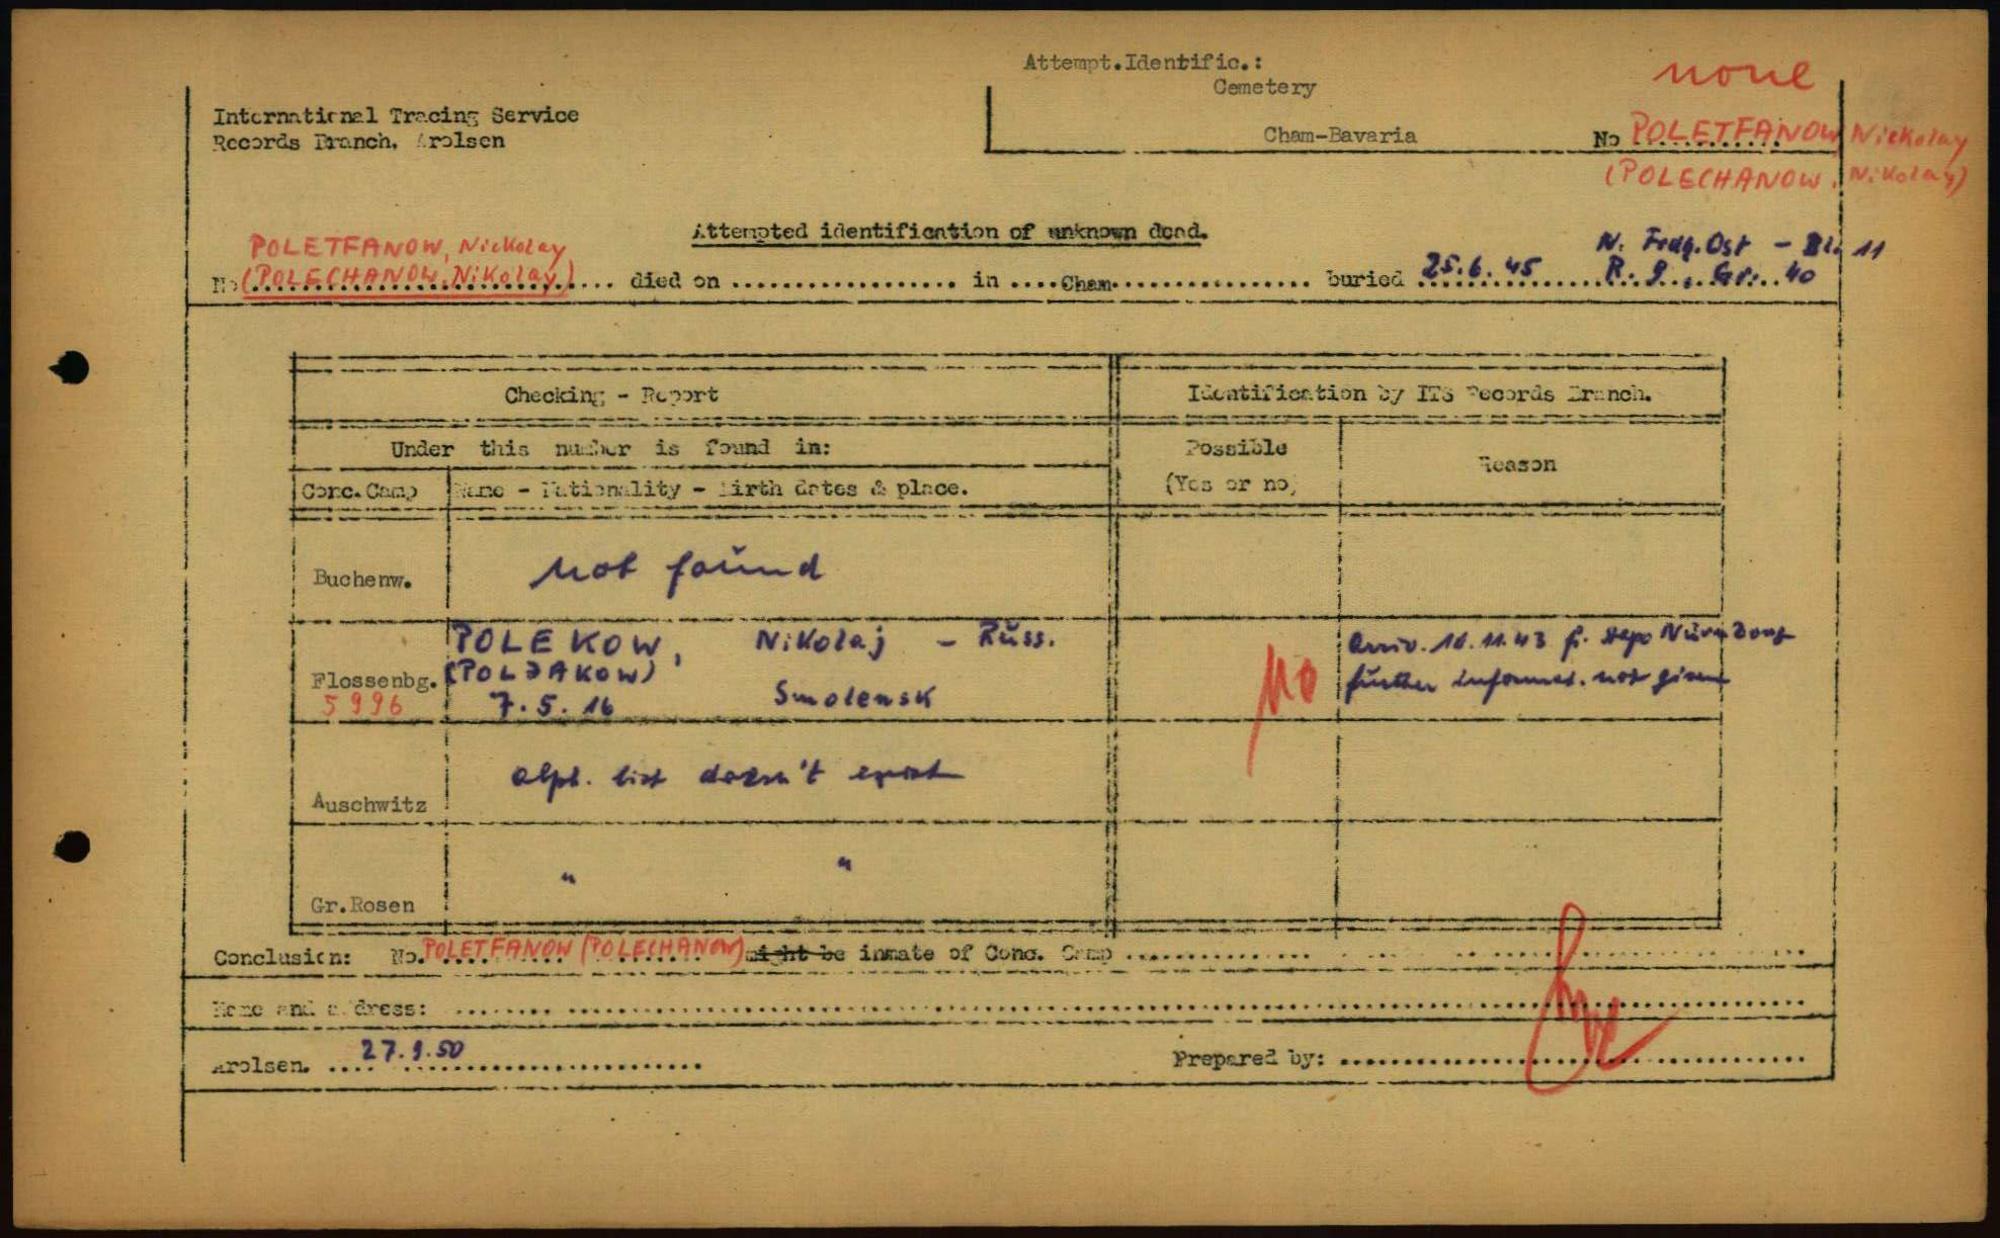 Attempt.Identific.:
Cemetery
none
International Tracing Service
Records Branch, Arolsen
Cham-Bavaria
No POLETFANOW, Nickolay
(POLECHANOW, Nikolay)
Attempted identification of unknown dead.
POLETFANOW, Nickolay
N. Frdg. Ost - Bl. 11
No (POLECHANOW, Nikolay) died on .................. in .... Cham................ buried 25.6.45 R. 9., Gr. 40
Checking - Report
Identification by ITS Records Branch.
Under this number is found in:
Possible
(Yes or no)
Reason
Conc.Camp
Name - Nationality - Birth dates & place.
Buchenw.
not found
Flossenbg.
5996
POLEKOW, Nikolaj - Russ.
(POLJAKOW)
7.5.16 Smolensk
NO
further informat. not given
Auschwitz
alph. list doesn't exist
Gr.Rosen
" "
Conclusion: No. POLETFANOW (POLECHANOW) might be inmate of Conc. Camp ................
Name and address: ................
Arolsen. .... 27.9.50 ................
Prepared by: ................